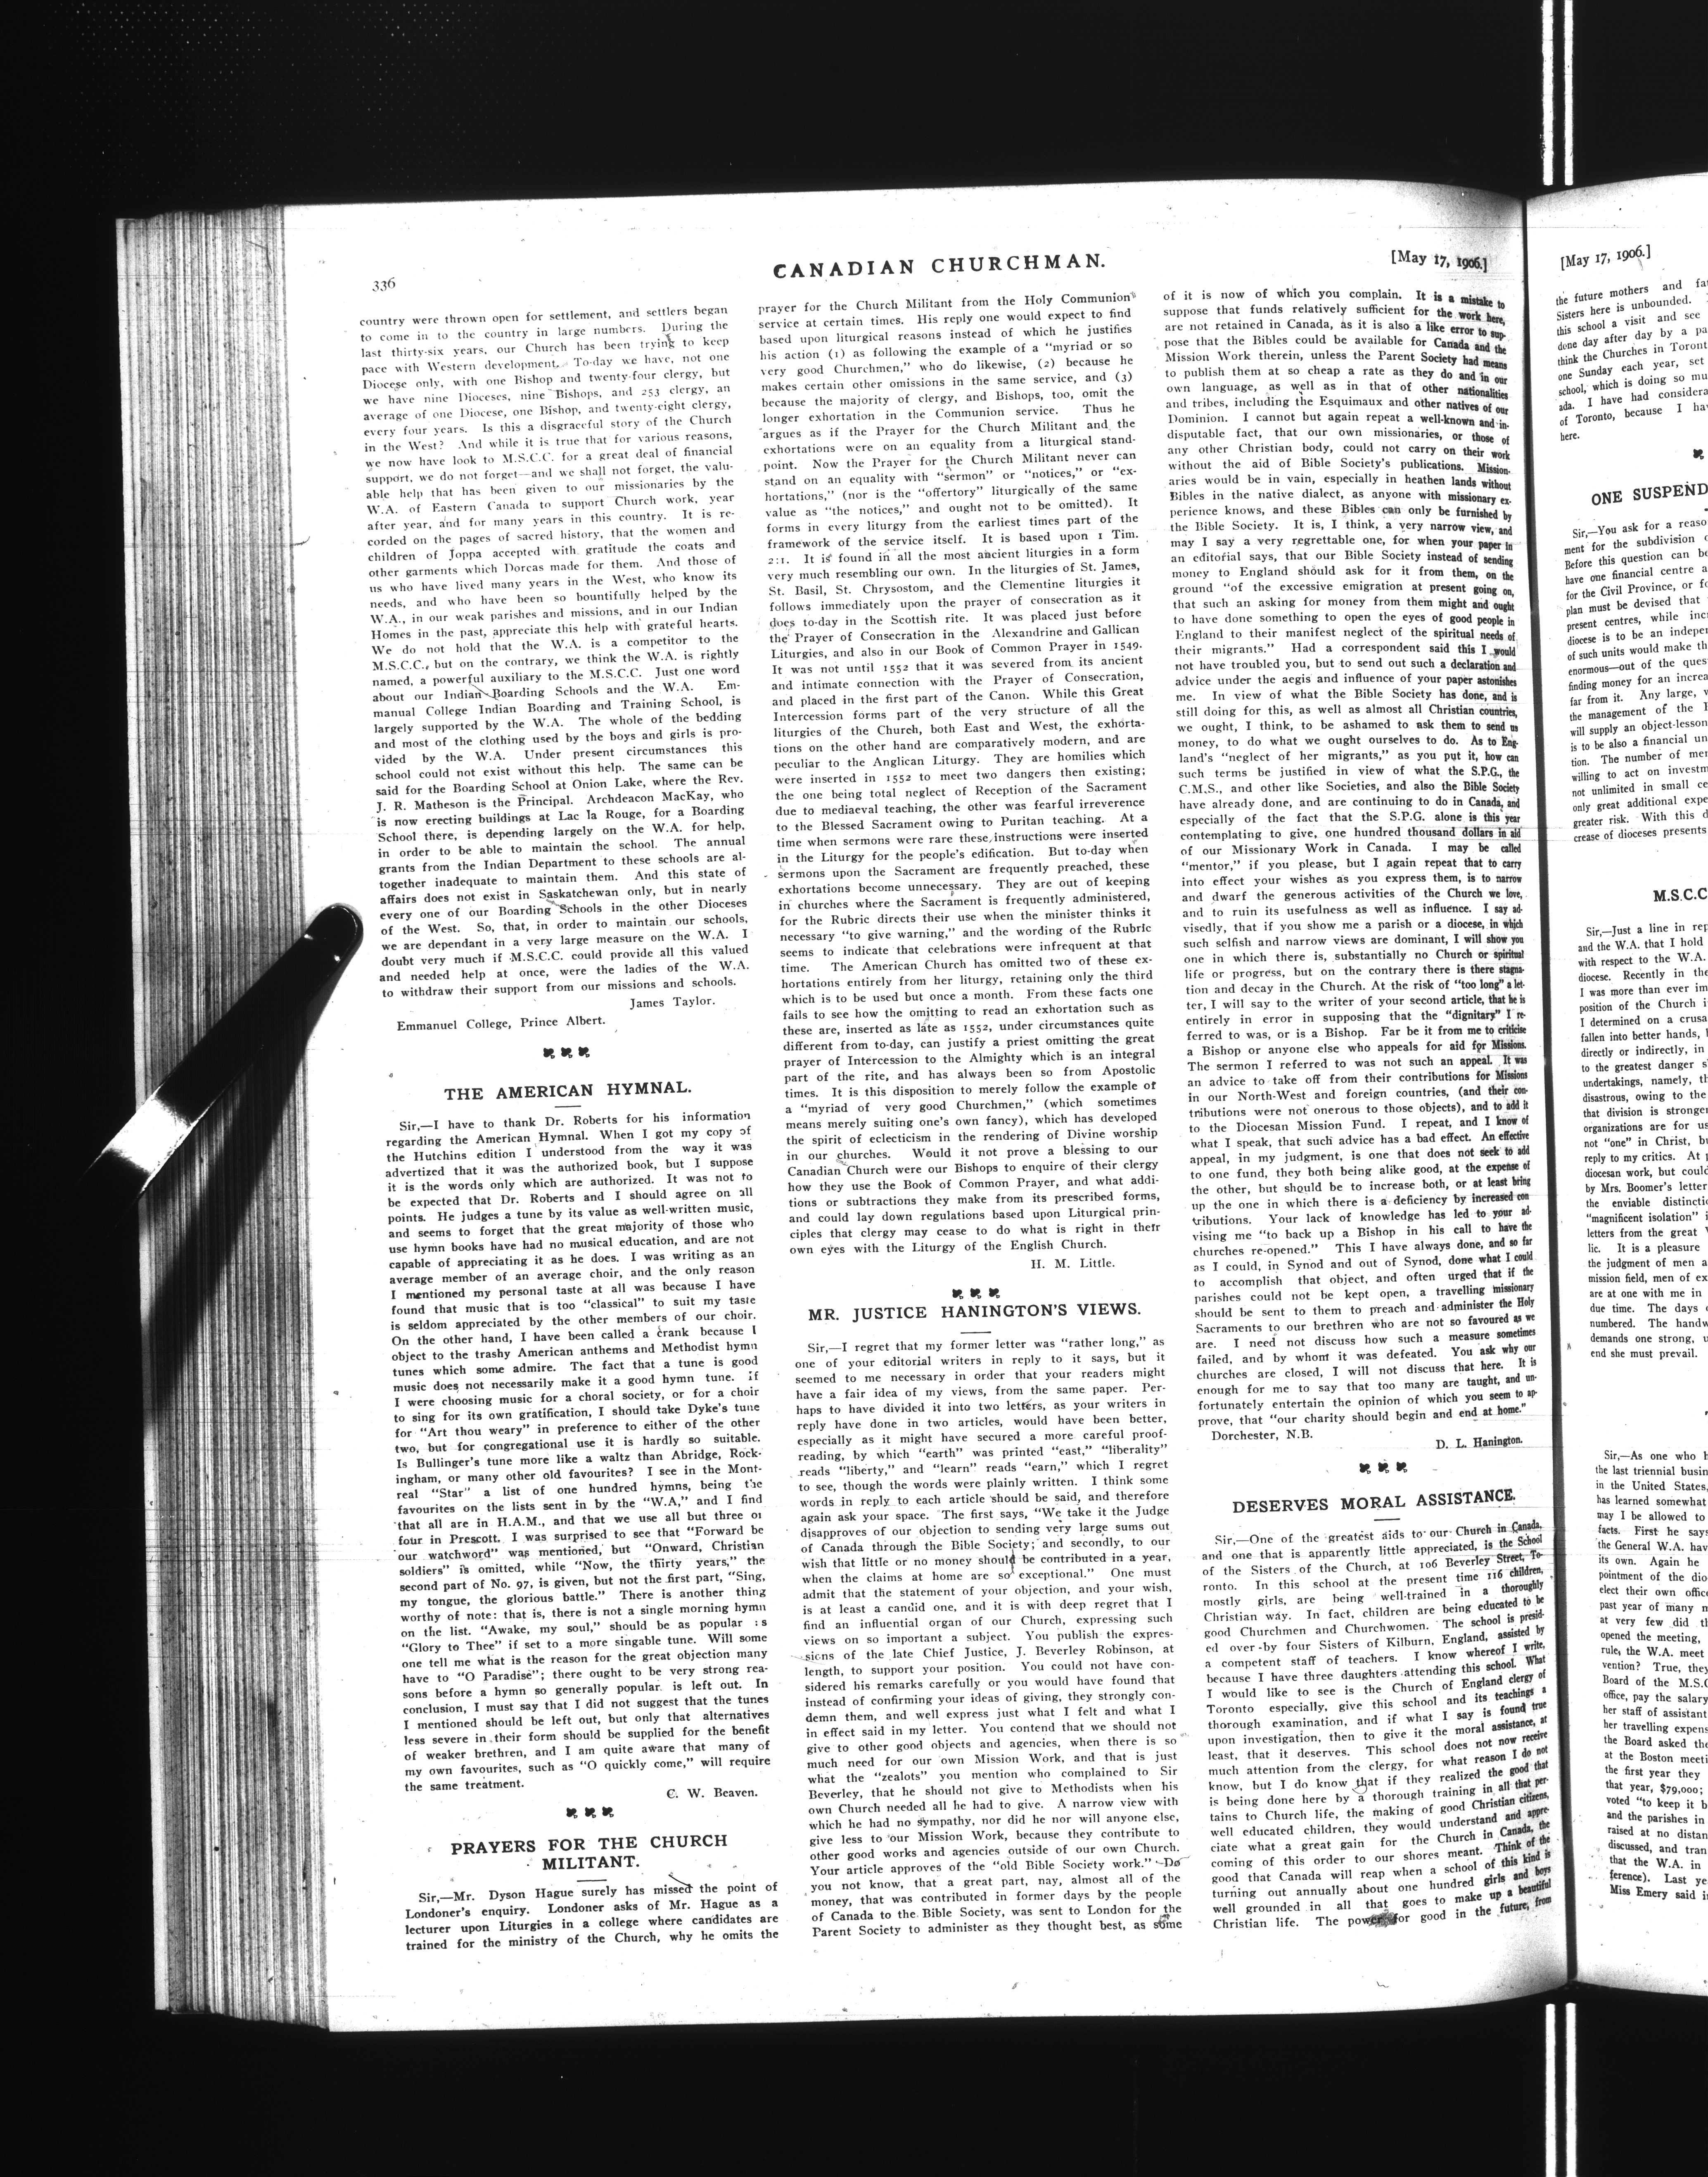 336
CANADIAN CHURCHMAN.
[May 17, 1906.]
country were thrown open for settlement, and settlers began
to come in to the country in large numbers. During the
last thirty-six years, our Church has been trying to keep
pace with Western development. To-day we have, not one
Diocese only, with one Bishop and twenty-four clergy, but
we have nine Dioceses, nine Bishops, and 253 clergy, an
average of one Diocese, one Bishop, and twenty-eight clergy,
every four years. Is this a disgraceful story of the Church
in the West? And while it is true that for various reasons,
we now have look to M.S.C.C. for a great deal of financial
support, we do not forget—and we shall not forget, the valu-
able help that has been given to our missionaries by the
W.A. of Eastern Canada to support Church work, year
after year, and for many years in this country. It is re-
corded on the pages of sacred history, that the women and
children of Joppa accepted with gratitude the coats and
other garments which Dorcas made for them. And those of
us who have lived many years in the West, who know its
needs, and who have been so bountifully helped by the
W.A., in our weak parishes and missions, and in our Indian
Homes in the past, appreciate this help with grateful hearts.
We do not hold that the W.A. is a competitor to the
M.S.C.C., but on the contrary, we think the W.A. is rightly
named, a powerful auxiliary to the M.S.C.C. Just one word
about our Indian Boarding Schools and the W.A. Em-
manual College Indian Boarding and Training School, is
largely supported by the W.A. The whole of the bedding
and most of the clothing used by the boys and girls is pro-
vided by the W.A. Under present circumstances this
school could not exist without this help. The same can be
said for the Boarding School at Onion Lake, where the Rev.
J. R. Matheson is the Principal. Archdeacon MacKay, who
is now erecting buildings at Lac la Rouge, for a Boarding
School there, is depending largely on the W.A. for help,
in order to be able to maintain the school. The annual
grants from the Indian Department to these schools are al-
together inadequate to maintain them. And this state of
affairs does not exist in Saskatchewan only, but in nearly
every one of our Boarding Schools in the other Dioceses
of the West. So, that, in order to maintain our schools,
we are dependant in a very large measure on the W.A. I
doubt very much if M.S.C.C. could provide all this valued
and needed help at once, were the ladies of the W.A.
to withdraw their support from our missions and schools.
James Taylor.
Emmanuel College, Prince Albert.
THE AMERICAN HYMNAL.
Sir,—I have to thank Dr. Roberts for his information
regarding the American Hymnal. When I got my copy of
the Hutchins edition I understood from the way it was
advertized that it was the authorized book, but I suppose
it is the words only which are authorized. It was not to
be expected that Dr. Roberts and I should agree on all
points. He judges a tune by its value as well-written music,
and seems to forget that the great majority of those who
use hymn books have had no musical education, and are not
capable of appreciating it as he does. I was writing as an
average member of an average choir, and the only reason
I mentioned my personal taste at all was because I have
found that music that is too "classical" to suit my taste
is seldom appreciated by the other members of our choir.
On the other hand, I have been called a crank because I
object to the trashy American anthems and Methodist hymn
tunes which some admire. The fact that a tune is good
music does not necessarily make it a good hymn tune. If
I were choosing music for a choral society, or for a choir
to sing for its own gratification, I should take Dyke's tune
for "Art thou weary" in preference to either of the other
two, but for congregational use it is hardly so suitable.
Is Bullinger's tune more like a waltz than Abridge, Rock-
ingham, or many other old favourites? I see in the Mont-
real "Star" a list of one hundred hymns, being the
favourites on the lists sent in by the "W.A," and I find
that all are in H.A.M., and that we use all but three or
four in Prescott. I was surprised to see that "Forward be
our watchword" was mentioned, but "Onward, Christian
soldiers" is omitted, while "Now, the thirty years," the
second part of No. 97, is given, but not the first part, "Sing,
my tongue, the glorious battle." There is another thing
worthy of note: that is, there is not a single morning hymn
on the list. "Awake, my soul," should be as popular as
"Glory to Thee" if set to a more singable tune. Will some
one tell me what is the reason for the great objection many
have to "O Paradise"; there ought to be very strong rea-
sons before a hymn so generally popular is left out. In
conclusion, I must say that I did not suggest that the tunes
I mentioned should be left out, but only that alternatives
less severe in their form should be supplied for the benefit
of weaker brethren, and I am quite aware that many of
my own favourites, such as "O quickly come," will require
the same treatment.
C. W. Beaven.
PRAYERS FOR THE CHURCH
MILITANT.
Sir,—Mr. Dyson Hague surely has missed the point of
Londoner's enquiry. Londoner asks of Mr. Hague as a
lecturer upon Liturgies in a college where candidates are
trained for the ministry of the Church, why he omits the
prayer for the Church Militant from the Holy Communion
service at certain times. His reply one would expect to find
based upon liturgical reasons instead of which he justifies
his action (1) as following the example of a "myriad or so
very good Churchmen," who do likewise, (2) because he
makes certain other omissions in the same service, and (3)
because the majority of clergy, and Bishops, too, omit the
longer exhortation in the Communion service. Thus he
argues as if the Prayer for the Church Militant and the
exhortations were on an equality from a liturgical stand-
point. Now the Prayer for the Church Militant never can
stand on an equality with "sermon" or "notices," or "ex-
hortations," (nor is the "offertory" liturgically of the same
value as "the notices," and ought not to be omitted). It
forms in every liturgy from the earliest times part of the
framework of the service itself. It is based upon 1 Tim.
2:1. It is found in all the most ancient liturgies in a form
very much resembling our own. In the liturgies of St. James,
St. Basil, St. Chrysostom, and the Clementine liturgies it
follows immediately upon the prayer of consecration as it
does to-day in the Scottish rite. It was placed just before
the Prayer of Consecration in the Alexandrine and Gallican
Liturgies, and also in our Book of Common Prayer in 1549.
It was not until 1552 that it was severed from its ancient
and intimate connection with the Prayer of Consecration,
and placed in the first part of the Canon. While this Great
Intercession forms part of the very structure of all the
liturgies of the Church, both East and West, the exhorta-
tions on the other hand are comparatively modern, and are
peculiar to the Anglican Liturgy. They are homilies which
were inserted in 1552 to meet two dangers then existing;
the one being total neglect of Reception of the Sacrament
due to mediaeval teaching, the other was fearful irreverence
to the Blessed Sacrament owing to Puritan teaching. At a
time when sermons were rare these instructions were inserted
in the Liturgy for the people's edification. But to-day when
sermons upon the Sacrament are frequently preached, these
exhortations become unnecessary. They are out of keeping
in churches where the Sacrament is frequently administered,
for the Rubric directs their use when the minister thinks it
necessary "to give warning," and the wording of the Rubric
seems to indicate that celebrations were infrequent at that
time. The American Church has omitted two of these ex-
hortations entirely from her liturgy, retaining only the third
which is to be used but once a month. From these facts one
fails to see how the omitting to read an exhortation such as
these are, inserted as late as 1552, under circumstances quite
different from to-day, can justify a priest omitting the great
prayer of Intercession to the Almighty which is an integral
part of the rite, and has always been so from Apostolic
times. It is this disposition to merely follow the example of
a "myriad of very good Churchmen," (which sometimes
means merely suiting one's own fancy), which has developed
the spirit of eclecticism in the rendering of Divine worship
in our churches. Would it not prove a blessing to our
Canadian Church were our Bishops to enquire of their clergy
how they use the Book of Common Prayer, and what addi-
tions or subtractions they make from its prescribed forms,
and could lay down regulations based upon Liturgical prin-
ciples that clergy may cease to do what is right in their
own eyes with the Liturgy of the English Church.
H. M. Little.
MR. JUSTICE HANINGTON'S VIEWS.
Sir,—I regret that my former letter was "rather long," as
one of your editorial writers in reply to it says, but it
seemed to me necessary in order that your readers might
have a fair idea of my views, from the same paper. Per-
haps to have divided it into two letters, as your writers in
reply have done in two articles, would have been better,
especially as it might have secured a more careful proof-
reading, by which "earth" was printed "east," "liberality"
reads "liberty," and "learn" reads "earn," which I regret
to see, though the words were plainly written. I think some
words in reply to each article should be said, and therefore
again ask your space. The first says, "We take it the Judge
disapproves of our objection to sending very large sums out
of Canada through the Bible Society; and secondly, to our
wish that little or no money should be contributed in a year,
when the claims at home are so exceptional." One must
admit that the statement of your objection, and your wish,
is at least a candid one, and it is with deep regret that I
find an influential organ of our Church, expressing such
views on so important a subject. You publish the expres-
sions of the late Chief Justice, J. Beverley Robinson, at
length, to support your position. You could not have con-
sidered his remarks carefully or you would have found that
instead of confirming your ideas of giving, they strongly con-
demn them, and well express just what I felt and what I
in effect said in my letter. You contend that we should not
give to other good objects and agencies, when there is so
much need for our own Mission Work, and that is just
what the "zealots" you mention who complained to Sir
Beverley, that he should not give to Methodists when his
own Church needed all he had to give. A narrow view with
which he had no sympathy, nor did he nor will anyone else,
give less to our Mission Work, because they contribute to
other good works and agencies outside of our own Church.
Your article approves of the "old Bible Society work." Do
you not know, that a great part, nay, almost all of the
money, that was contributed in former days by the people
of Canada to the Bible Society, was sent to London for the
Parent Society to administer as they thought best, as some
of it is now of which you complain. It is a mistake to
suppose that funds relatively sufficient for the work here,
are not retained in Canada, as it is also a like error to sup-
pose that the Bibles could be available for Canada and the
Mission Work therein, unless the Parent Society had means
to publish them at so cheap a rate as they do and in our
own language, as well as in that of other nationalities
and tribes, including the Esquimaux and other natives of our
Dominion. I cannot but again repeat a well-known and in-
disputable fact, that our own missionaries, or those of
any other Christian body, could not carry on their work
without the aid of Bible Society's publications. Mission-
aries would be in vain, especially in heathen lands without
Bibles in the native dialect, as anyone with missionary ex-
perience knows, and these Bibles can only be furnished by
the Bible Society. It is, I think, a very narrow view, and
may I say a very regrettable one, for when your paper in
an editorial says, that our Bible Society instead of sending
money to England should ask for it from them, on the
ground "of the excessive emigration at present going on,
that such an asking for money from them might and ought
to have done something to open the eyes of good people in
England to their manifest neglect of the spiritual needs of
their migrants." Had a correspondent said this I would
not have troubled you, but to send out such a declaration and
advice under the aegis and influence of your paper astonishes
me. In view of what the Bible Society has done, and is
still doing for this, as well as almost all Christian countries,
we ought, I think, to be ashamed to ask them to send us
money, to do what we ought ourselves to do. As to Eng-
land's "neglect of her migrants," as you put it, how can
such terms be justified in view of what the S.P.G., the
C.M.S., and other like Societies, and also the Bible Society
have already done, and are continuing to do in Canada, and
especially of the fact that the S.P.G. alone is this year
contemplating to give, one hundred thousand dollars in aid
of our Missionary Work in Canada. I may be called
"mentor," if you please, but I again repeat that to carry
into effect your wishes as you express them, is to narrow
and dwarf the generous activities of the Church we love,
and to ruin its usefulness as well as influence. I say ad-
visedly, that if you show me a parish or a diocese, in which
such selfish and narrow views are dominant, I will show you
one in which there is, substantially no Church or spiritual
life or progress, but on the contrary there is there stagna-
tion and decay in the Church. At the risk of "too long" a let-
ter, I will say to the writer of your second article, that he is
entirely in error in supposing that the "dignitary" I re-
ferred to was, or is a Bishop. Far be it from me to criticise
a Bishop or anyone else who appeals for aid for Missions.
The sermon I referred to was not such an appeal. It was
an advice to take off from their contributions for Missions
in our North-West and foreign countries, (and their con-
tributions were not onerous to those objects), and to add it
to the Diocesan Mission Fund. I repeat, and I know of
what I speak, that such advice has a bad effect. An effective
appeal, in my judgment, is one that does not seek to add
to one fund, they both being alike good, at the expense of
the other, but should be to increase both, or at least bring
up the one in which there is a deficiency by increased con
tributions. Your lack of knowledge has led to your ad-
vising me "to back up a Bishop in his call to have the
churches re-opened." This I have always done, and so far
as I could, in Synod and out of Synod, done what I could
to accomplish that object, and often urged that if the
parishes could not be kept open, a travelling missionary
should be sent to them to preach and administer the Holy
Sacraments to our brethren who are not so favoured as we
are. I need not discuss how such a measure sometimes
failed, and by whom it was defeated. You ask why our
churches are closed, I will not discuss that here. It is
enough for me to say that too many are taught, and un-
fortunately entertain the opinion of which you seem to ap-
prove, that "our charity should begin and end at home."
Dorchester, N.B.
D. L. Hanington.
DESERVES MORAL ASSISTANCE.
Sir,—One of the greatest aids to our Church in Canada,
and one that is apparently little appreciated, is the School
of the Sisters of the Church, at 106 Beverley Street, To-
ronto. In this school at the present time 116 children,
mostly girls, are being well-trained in a thoroughly
Christian way. In fact, children are being educated to be
good Churchmen and Churchwomen. The school is presid-
ed over by four Sisters of Kilburn, England, assisted by
a competent staff of teachers. I know whereof I write,
because I have three daughters attending this school. What
I would like to see is the Church of England clergy of
Toronto especially, give this school and its teachings a
thorough examination, and if what I say is found true
upon investigation, then to give it the moral assistance, at
least, that it deserves. This school does not now receive
much attention from the clergy, for what reason I do not
know, but I do know that if they realized the good that
is being done here by a thorough training in all that per-
tains to Church life, the making of good Christian citizens,
well educated children, they would understand and appre-
ciate what a great gain for the Church in Canada, the
coming of this order to our shores meant. Think of the
good that Canada will reap when a school of this kind is
turning out annually about one hundred girls and boys
well grounded in all that goes to make up a beautiful
Christian life. The power for good in the future, from
[May 17, 1906.]
the future mothers and
Sisters here is unbounded.
this school a visit and see
done day after day by a
think the Churches in
one Sunday each year, set
school, which is doing so
ada. I have had
of Toronto, because I
here.
ONE
Sir,—You ask for a
ment for the subdivision
Before this question can
have one financial centre
for the Civil Province, or
plan must be devised that
present centres, while
diocese is to be an
of such units would make
enormous—out of the
finding money for an
far from it. Any large,
the management of the
will supply an
is to be also a financial
tion. The number of
willing to act on
not unlimited in small
only great additional
greater risk. With this
crease of dioceses presents
M.S.C.C
Sir,—Just a line in
and the W.A. that I hold
with respect to the W.A.
diocese. Recently in the
I was more than ever
position of the Church
I determined on a crusa
fallen into better hands,
directly or indirectly, in
to the greatest danger
undertakings, namely,
disastrous, owing to the
that division is stronger
organizations are for
not "one" in Christ,
reply to my critics. At
diocesan work, but could
by Mrs. Boomer's letter
the enviable
"magnificent isolation"
letters from the great
lic. It is a pleasure
the judgment of men
mission field, men of
are at one with me in
due time. The days
numbered. The
demands one strong,
end she must prevail.
Sir,—As one who
the last triennial
in the United States,
has learned somewhat
may I be allowed to
facts. First he says
the General W.A.
its own. Again he
pointment of the
elect their own
past year of many
at very few did
opened the meeting,
rule, the W.A. meet
vention? True, they
Board of the
office, pay the salary
her staff of assistant
her travelling
the Board asked
at the Boston
the first year they
that year, $79,000;
voted "to keep it
and the parishes in
raised at no
discussed, and
that the W.A. in
ference). Last
Miss Emery said